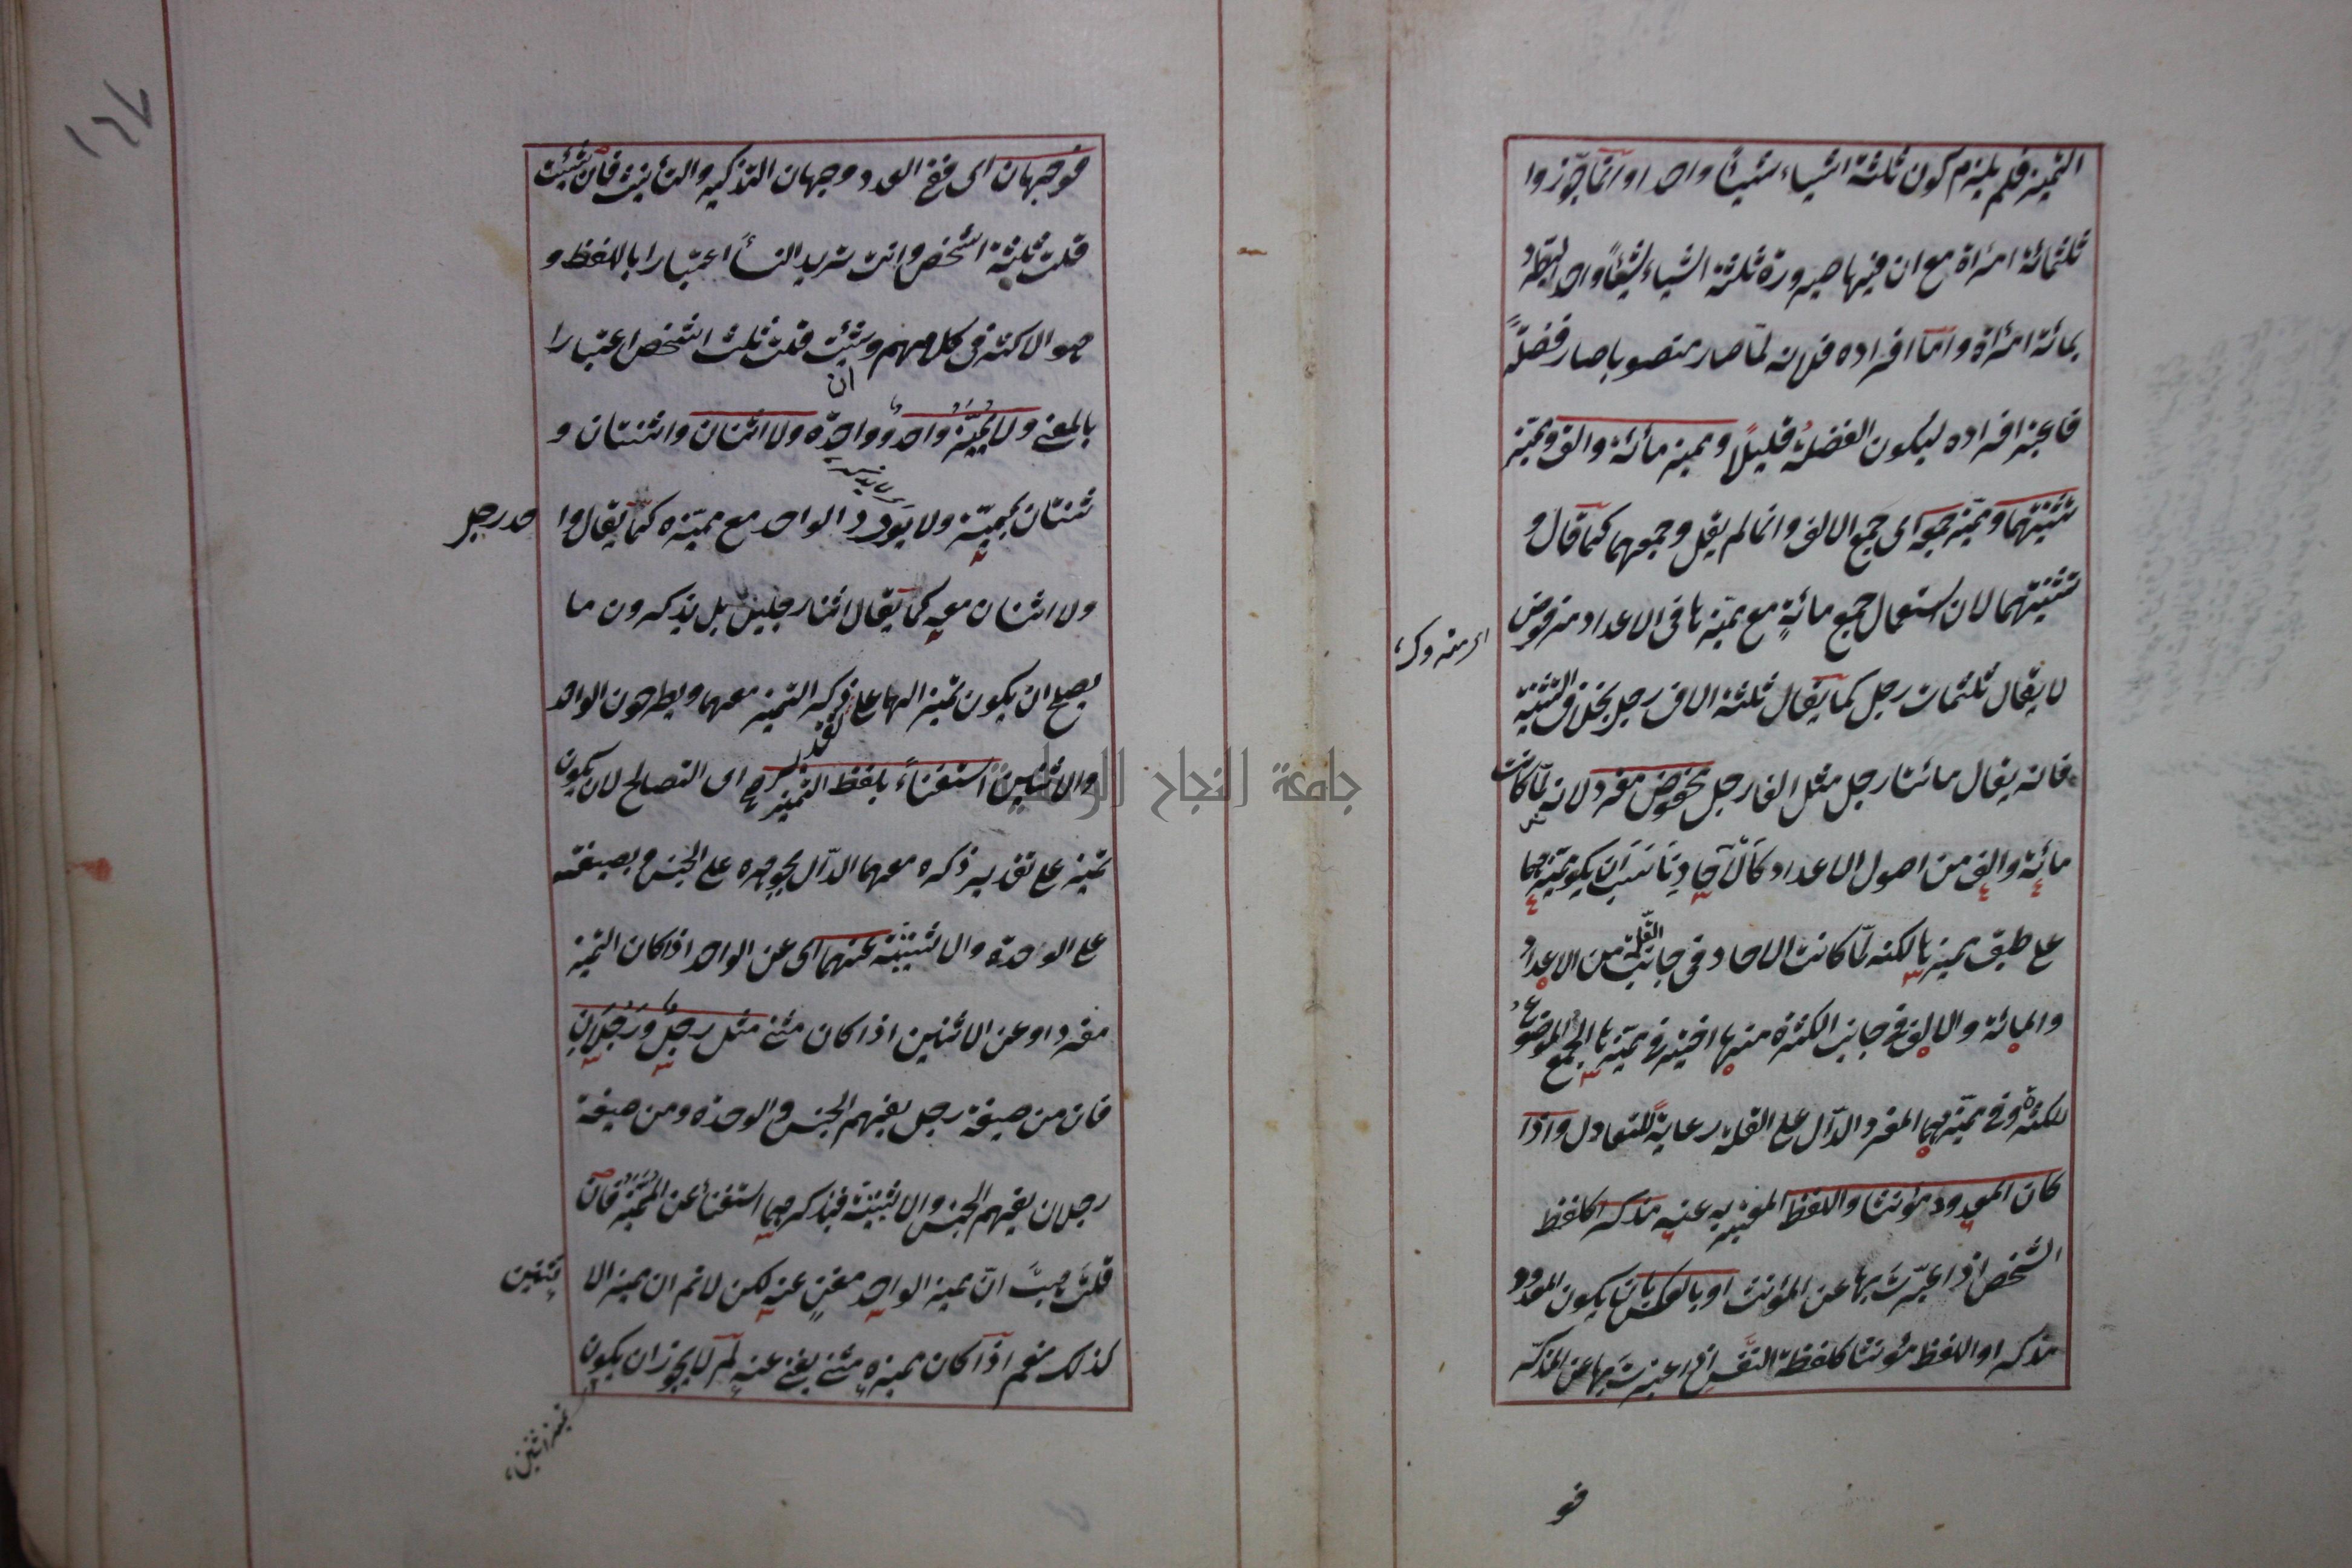 التميز فلم يلزم كون ثلثة اشياء شيئاً واحدا وانما جوّزوا
ثلثمائة امرأة مع ان فيها صيرورة ثلثة اشياء شيئاً واحدا
بمائة امرأة واما افراده فلانه لمّا صار منصوبا صار فضلةً
فاعتبر افراده ليكون الفضلة قليلاً ومميز مائة والف ومميّز
تثنيتهما ومميّز جمعه اى جمع الالف وانما لم يقل وجمعهما كما قال و
تثنيتهما لان استعمال جمع مائةٍ مع مميّزها فى الاعداد مرفوض
اى متروك
لا يقال ثلثمات رجل كما يقال ثلثة الاف رجل بخلاف التثنية
فانه يقال مائتا رجل مثل الفا رجل مخفوض مفرد لانه لمّا كانت
مائة والف من اصول الاعداد كالآحاد ناسَبَ ان يكون مميّزهما
على طبق مميزها لكنه لمّا كانت الاحاد فى جانب القلة من الاعداد
والمائة والالف فى جانب الكثرة منها اختير فى مميّزها الجمع الموضوع
للكثرة وفى مميّزهما المفرد الدّال على القلة رعايةً للتعادل واذا
كان المعدود مؤنثا واللفظ المعبّر به عنه مذكرا كلفظ
الشخص اذا عبّرتَ بها عن المؤنث او بالعكس بان يكون المعدود
مذكرا واللفظ مؤنثا كلفظة النفس اذا عبّرتَ بها عن المذكّر
فو
فوجهان اى ففى العدد وجهان التذكير والتأنيث فان شئت
قلت ثلثة اشخص وانت تريد النسأ اعتبارا باللفظ و
هو الاكثر فى كلامهم وان شئت قلت ثلث اشخص اعتبارا
بالمعنى ولا يميّز واحد وواحدة ولا اثنان واثنتان و
ثنتان بمميّز ولا يورد الواحد مع مميّزه كما يقال وا
حد رجل
ولا اثنان معه كما يقال اثنا رجلين بل يذكرون ما
يصلح ان يكون تميز الهما على ذكر التميز معهما ويطرحون الواحد
والاثنين استغناءً بلفظ التميز اى الصالح لان يكون
تميز على تقدير ذكره معهما الدّال بجوهره على الجنس وبصيغته
على الوحدة والاثنينيّة عنهما اى عن الواحد اذا كان التميز
مفردا وعن الاثنين اذا كان مثنى مثل رجل ورجلان
فان من صيغة رجل يفهم الجنس والوحدة ومن صيغة
رجلان يفهم الجنس والاثنينيّة فبذكرهما استغنأ عن المميّز فان
قلت هبْ انّ مميز الواحد مغنٍ عنه لكن لا نم ان مميز الا
ثنين
كذلك نعم اذا كان مميزه مثنى يغنى عنه لم لا يجوز ان يكون